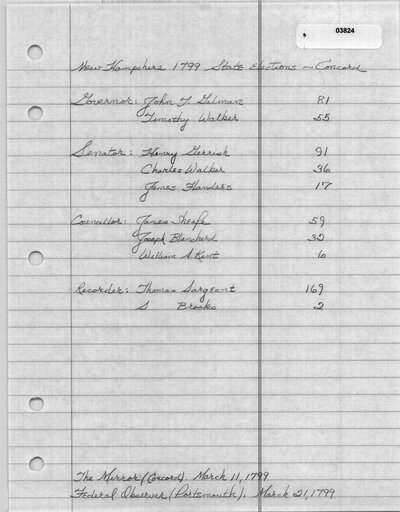 03824
New Hampshire 1799 State Elections - Concord
Governor: John T Gilman 81
Timothy Walker 55
Senator: Henry Gerrish 91
Charles Walker 36
James Flanders 17
Councillor: James Sheafe 59
Joseph Blanchard 32
William A. Kent 6
Recorder: Thomas Sargeant 169
S Brooks 2
The Mirror (Concord). March 11, 1799
Federal Observer (Portsmouth). March 21, 1799